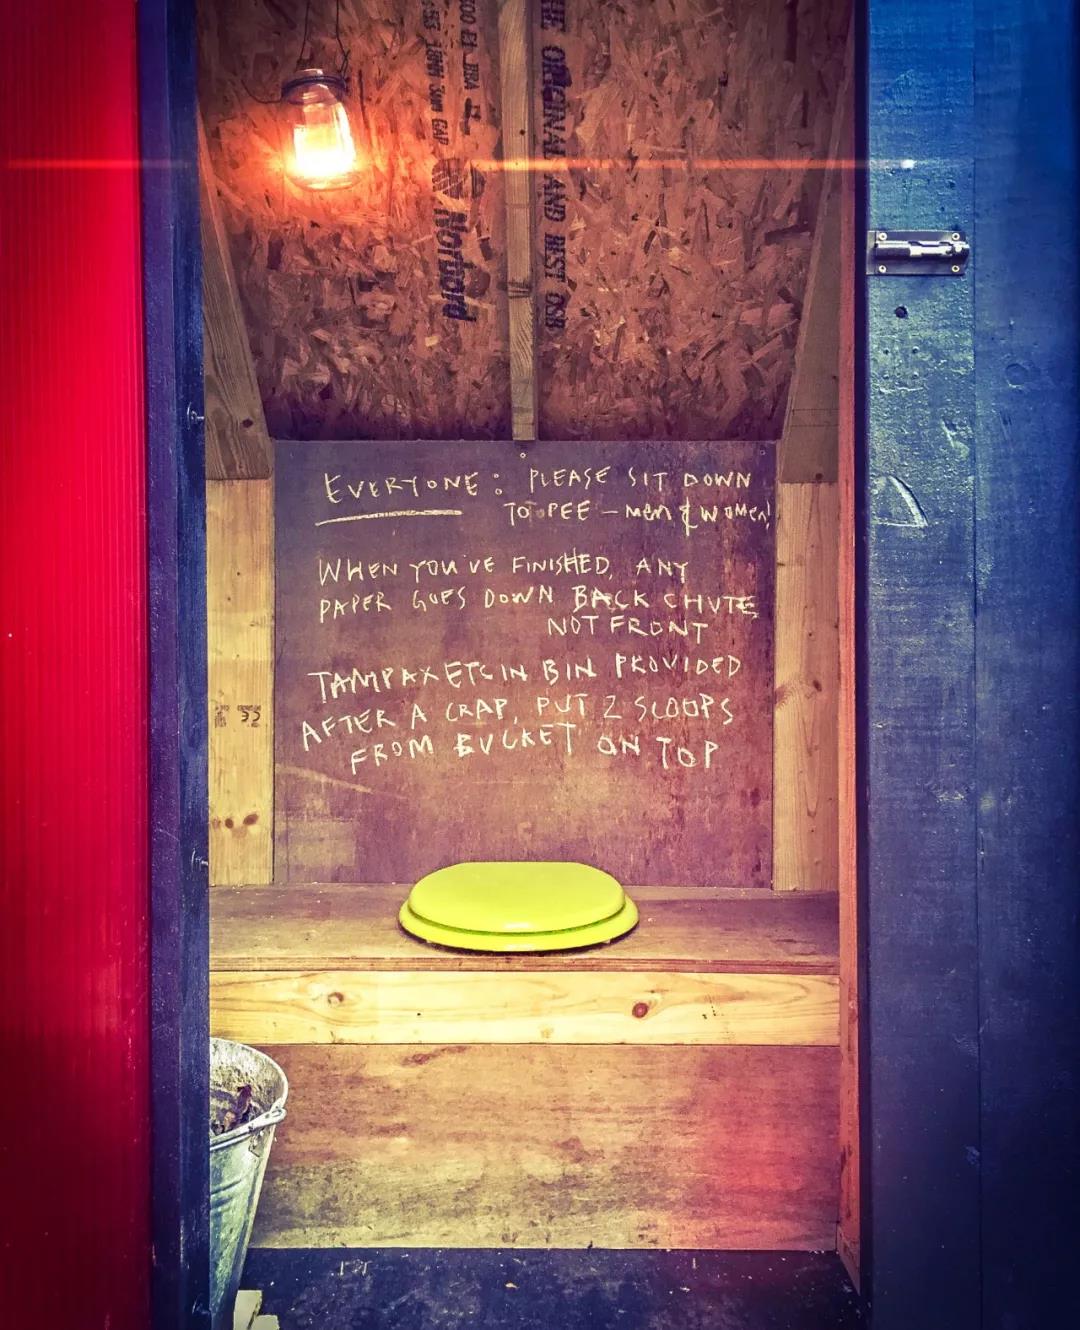 THE ORIGINAL AND BEST OSB
Norbord
EVERYONE: PLEASE SIT DOWN
TO PEE – MEN & WOMEN!
WHEN YOU'VE FINISHED, ANY
PAPER GOES DOWN BACK CHUTE
NOT FRONT
TAMPAX ETC IN BIN PROVIDED
AFTER A CRAP, PUT 2 SCOOPS
FROM BUCKET ON TOP
CE